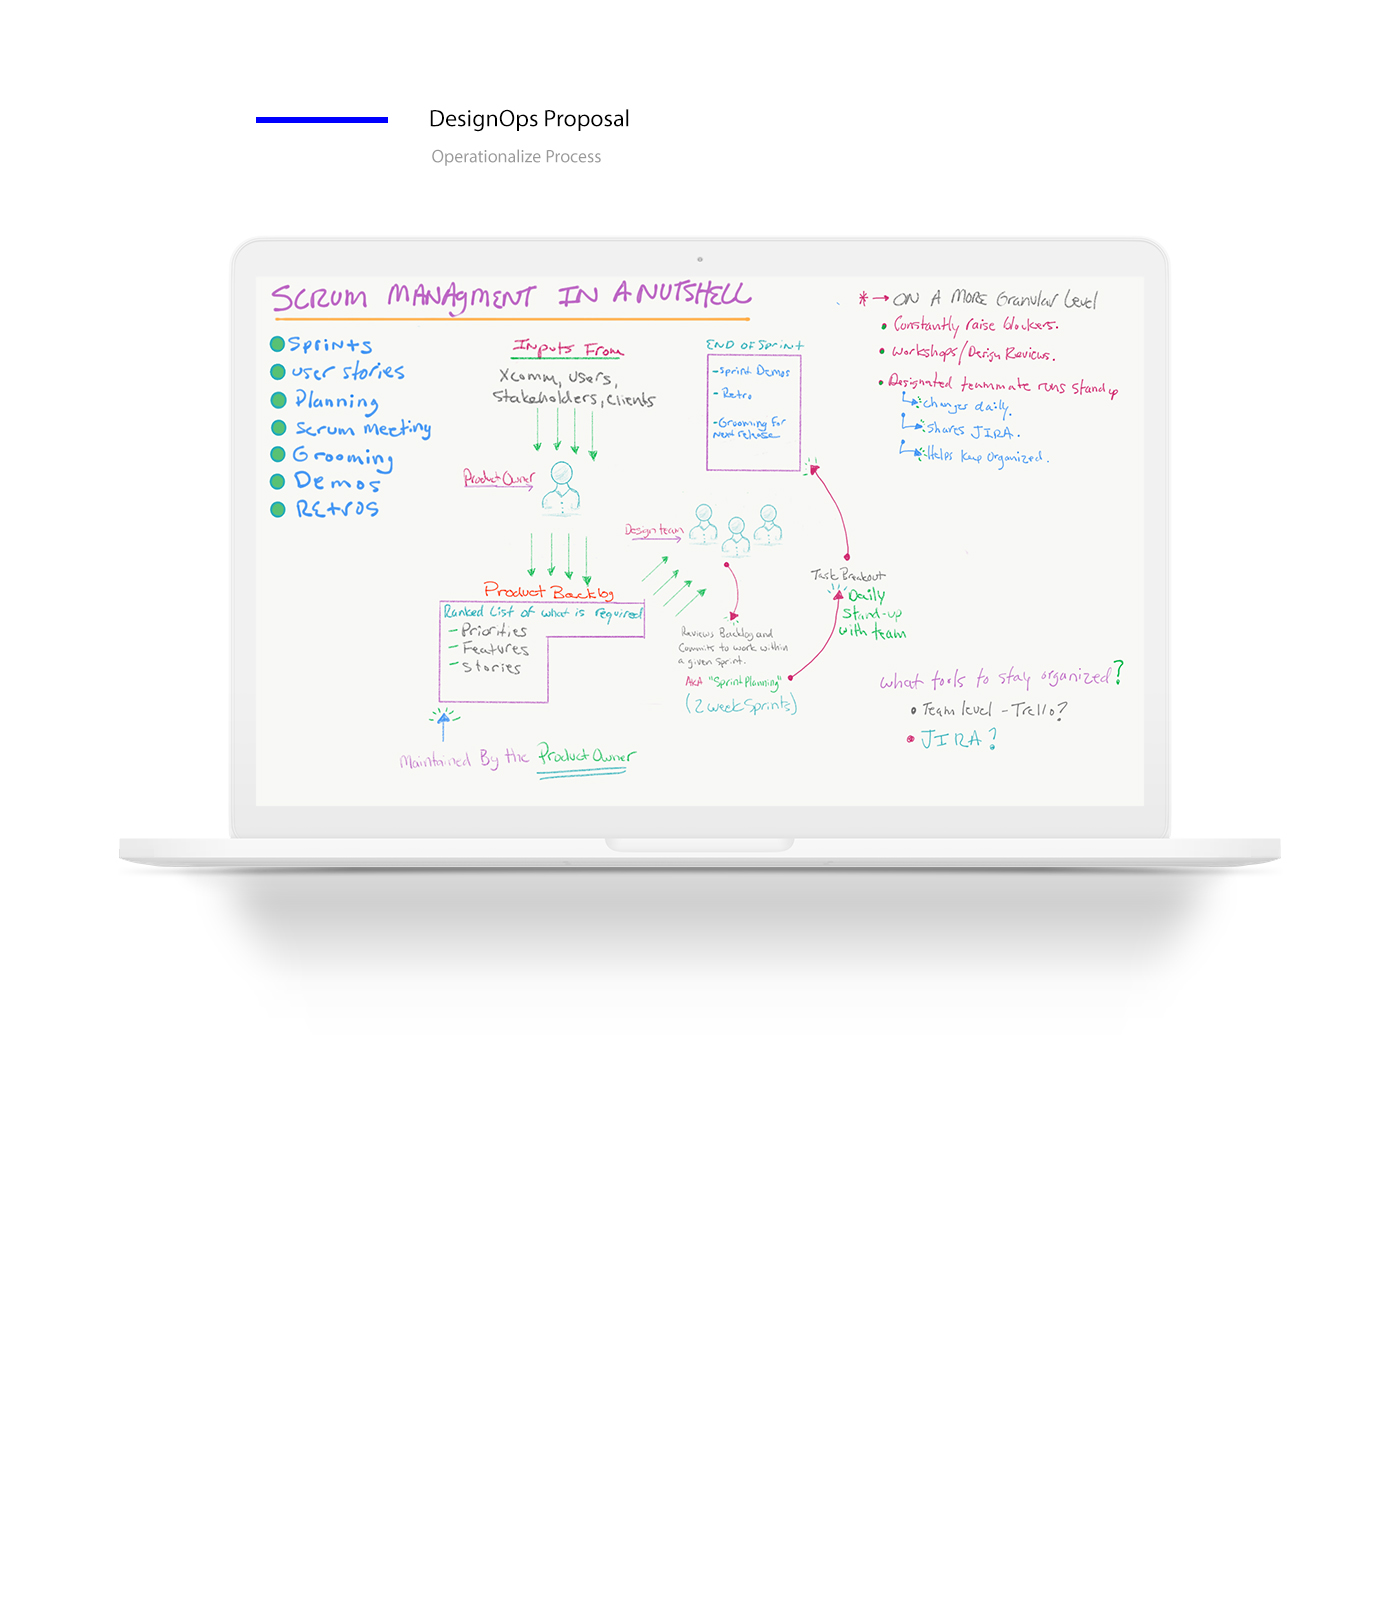 DesignOps Proposal
Operationalize Process
SCRUM MANAGMENT IN A NUTSHELL
Sprints
User stories
Planning
Scrum meeting
Grooming
Demos
RETROS
Inputs From
Xcomm, Users,
Stakeholders, Clients
Product Owner
Product Backlog
Ranked List of what is required
- Priorities
- Features
- Stories
Maintained By the Product Owner
END OF Sprint
- Sprint Demos
- Retro
- Grooming For
Next release
Design team
Reviews Backlog and
Commits to work within
a given Sprint.
AKA "Sprint Planning"
(2 week Sprints)
Task Breakout
Daily
Stand-up
with team
* → ON A MORE Granular Level
• Constantly raise blockers.
• Workshops/Design Reviews.
• Designated teammate runs standup
Changes daily.
Shares JIRA.
Helps Keep Organized.
What tools to stay organized?
• Team level - Trello?
• JIRA?